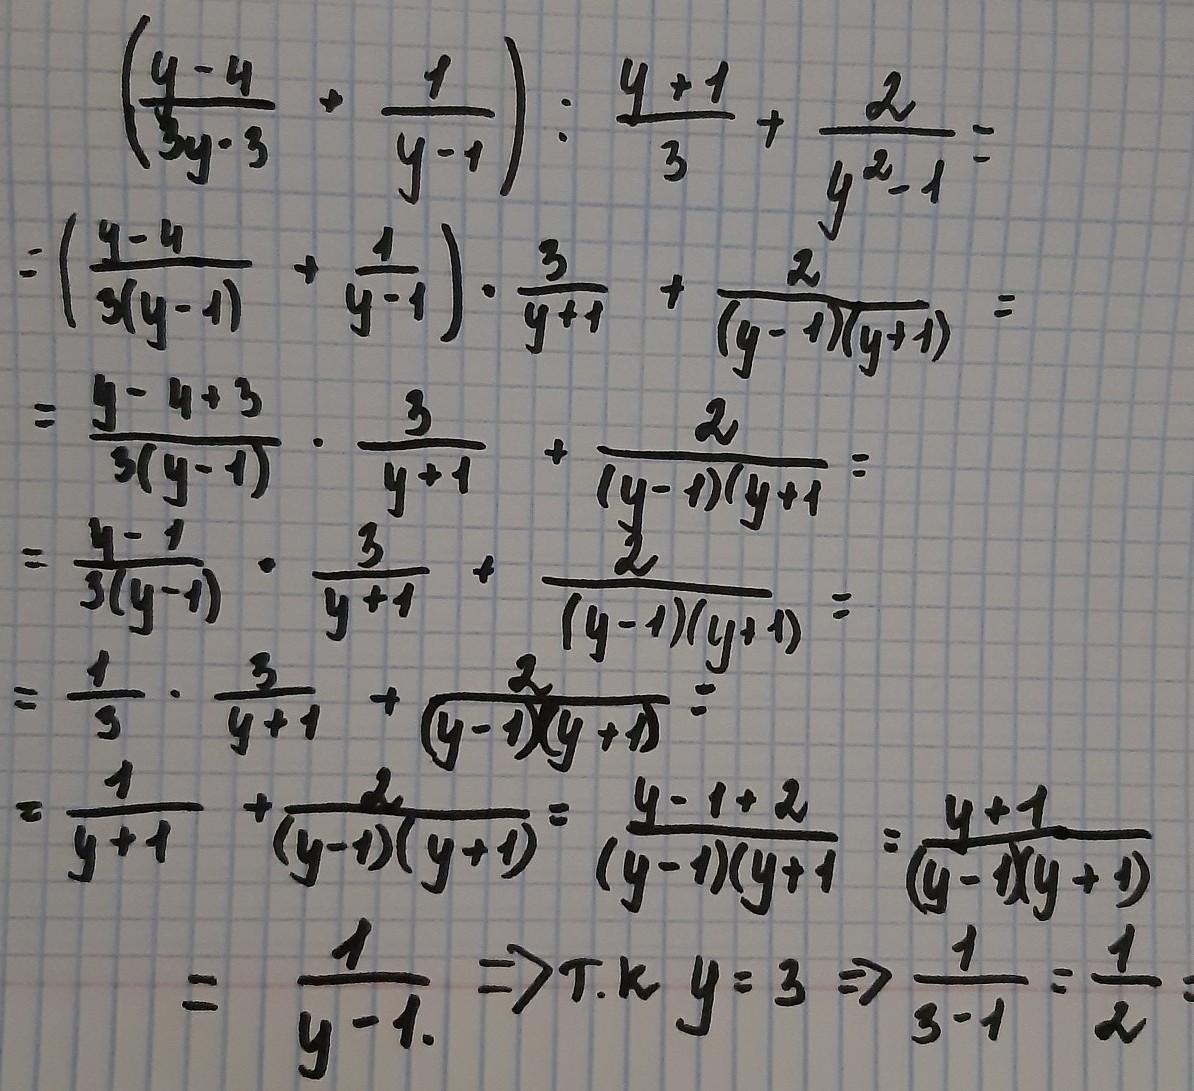 (y-4/3y-3 + 1/y-1) : y+1/3 + 2/y²-1 =
= (y-4/3(y-1) + 1/y-1) · 3/y+1 + 2/(y-1)(y+1) =
= y-4+3/3(y-1) · 3/y+1 + 2/(y-1)(y+1 =
= y-1/3(y-1) · 3/y+1 + 2/(y-1)(y+1) =
= 1/3 · 3/y+1 + 2/(y-1)(y+1) =
= 1/y+1 + 2/(y-1)(y+1) = y-1+2/(y-1)(y+1 = y+1/(y-1)(y+1)
= 1/y-1. => т.к y = 3 => 1/3-1 = 1/2 =